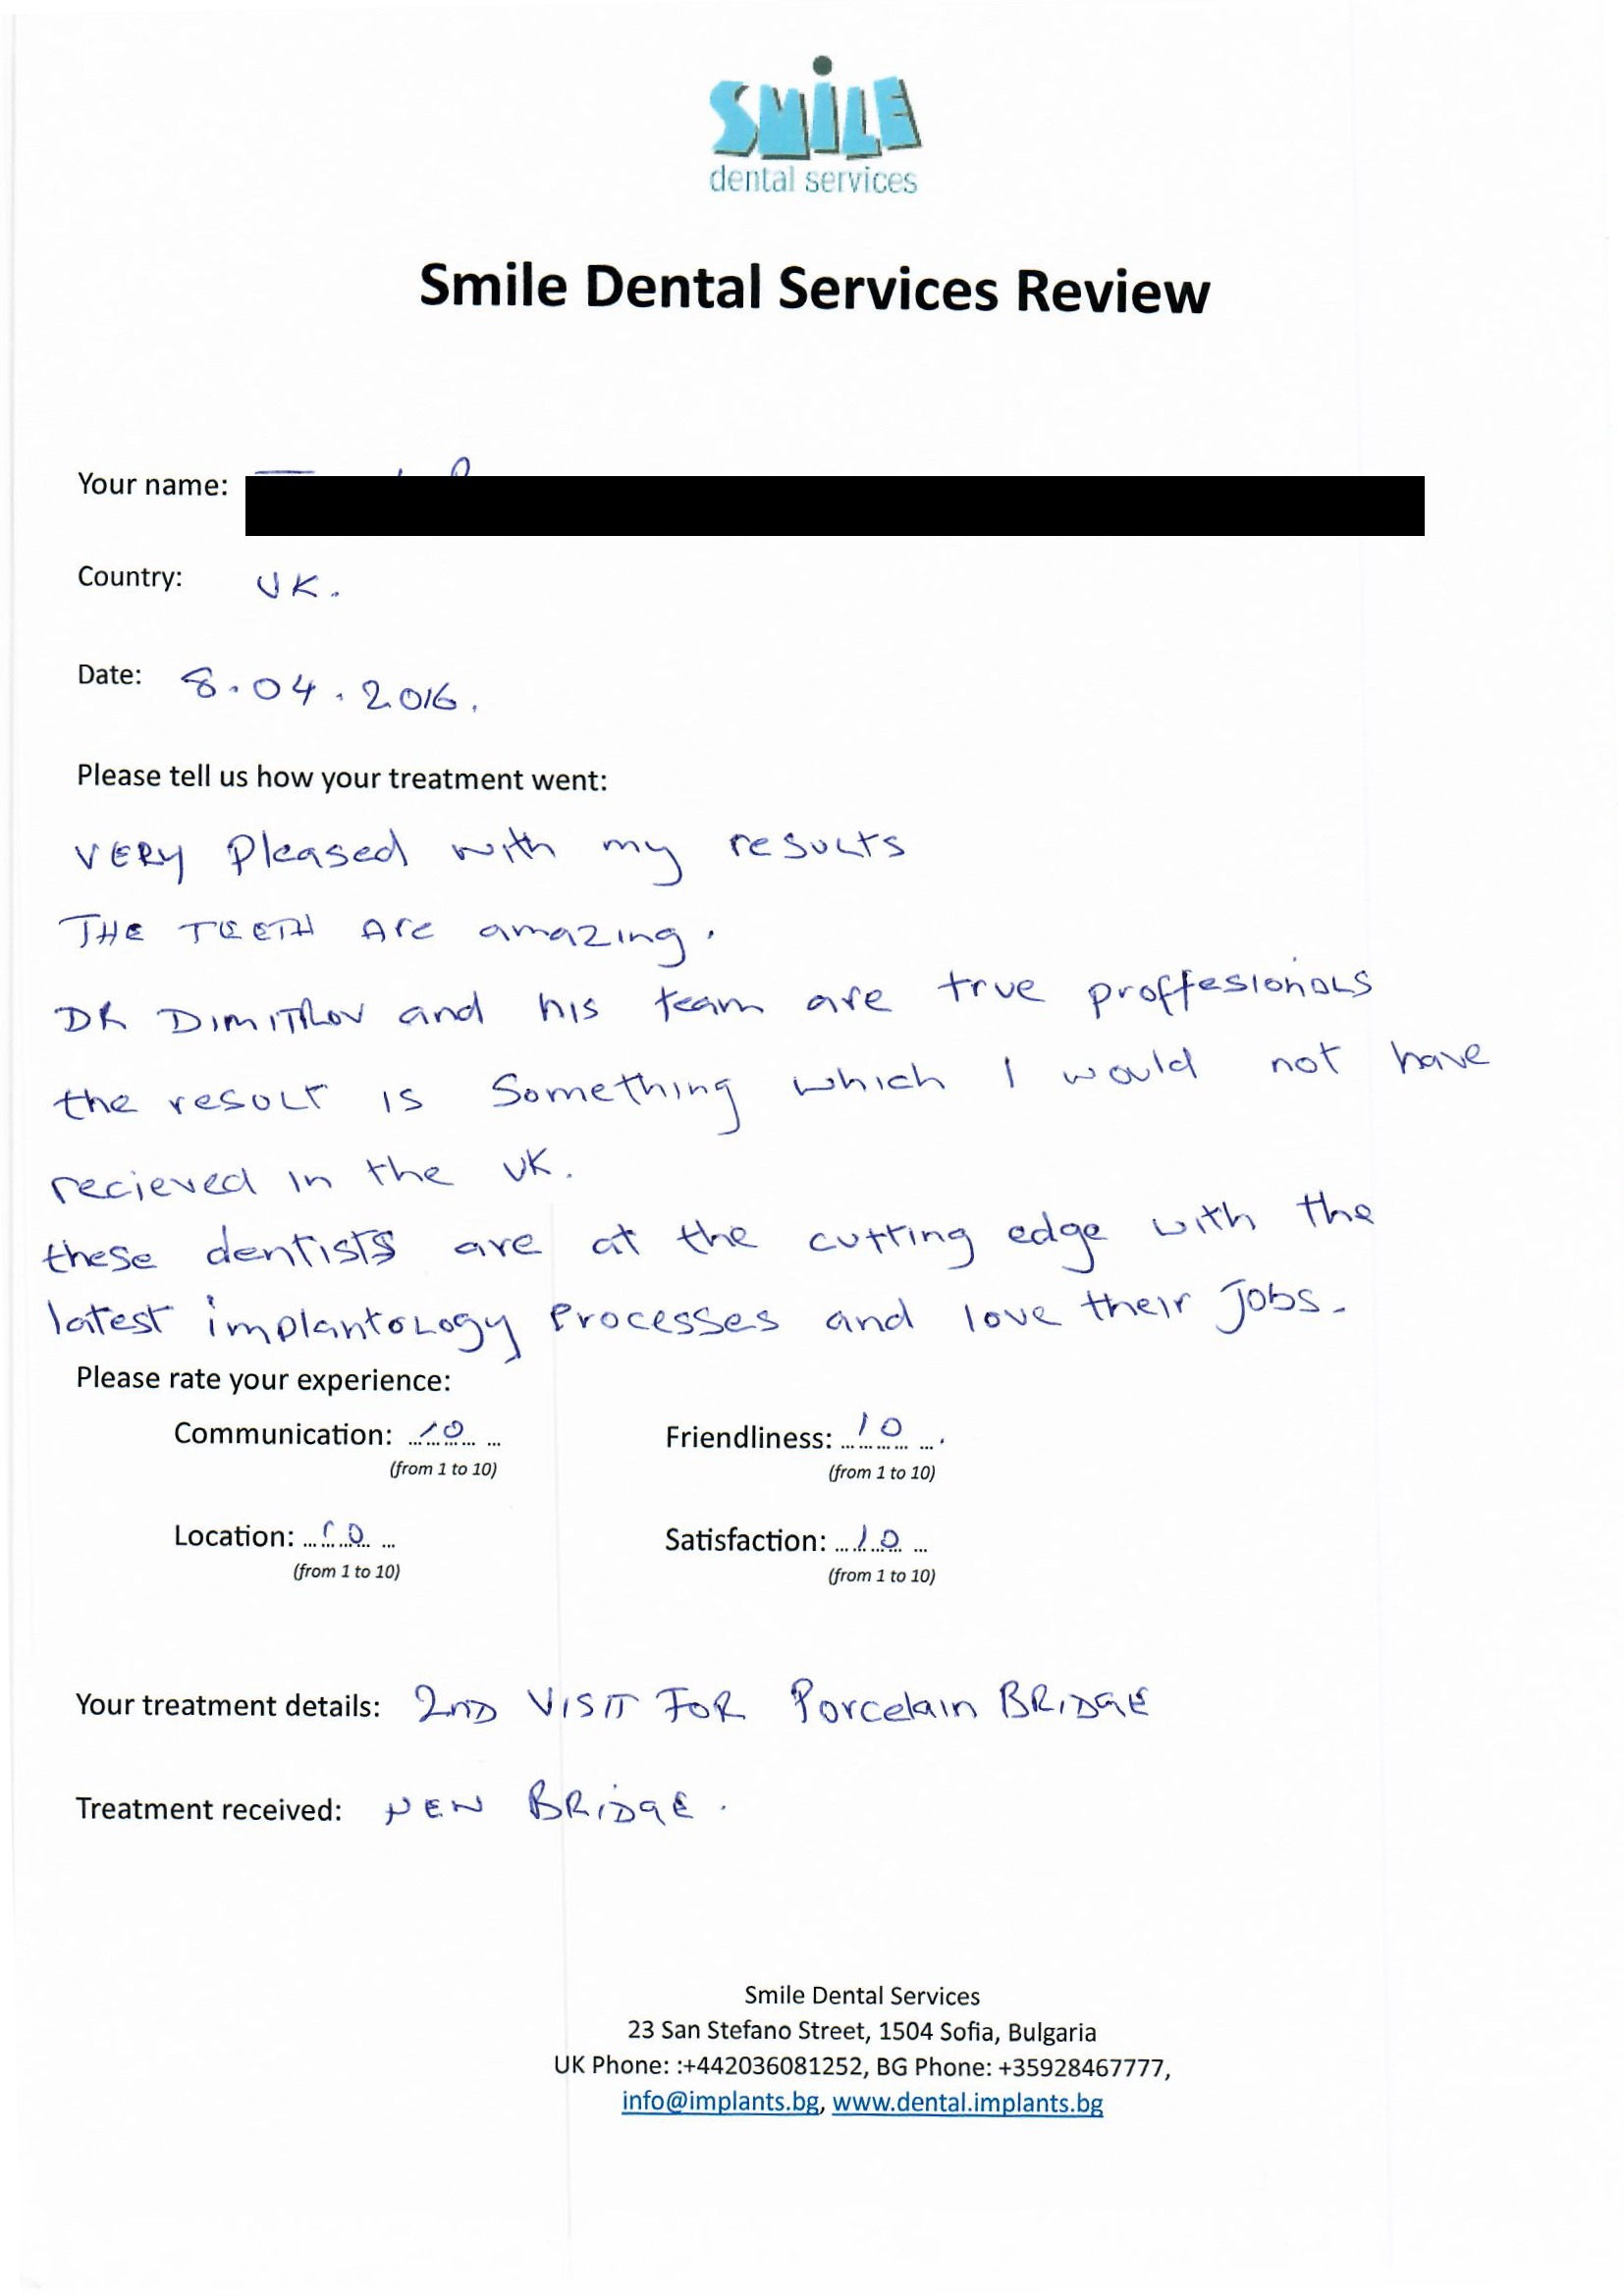 SMiLE
dental services
Smile Dental Services Review
Your name:
Country: UK.
Date: 8.04.2016.
Please tell us how your treatment went:
VERY Pleased with my results
THE TEETH Are amazing.
DR DIMITROV and his team are true proffesionals
the result is Something which I would not have
recieved in the UK.
these dentists are at the cutting edge with the
latest implantology Processes and love their jobs.
Please rate your experience:
Communication: 10 Friendliness: 10
(from 1 to 10) (from 1 to 10)
Location: 10 Satisfaction: 10
(from 1 to 10) (from 1 to 10)
Your treatment details: 2ND VISIT FOR Porcelain BRIDGE
Treatment received: NEW BRIDGE.
Smile Dental Services
23 San Stefano Street, 1504 Sofia, Bulgaria
UK Phone: :+442036081252, BG Phone: +35928467777,
info@implants.bg, www.dental.implants.bg